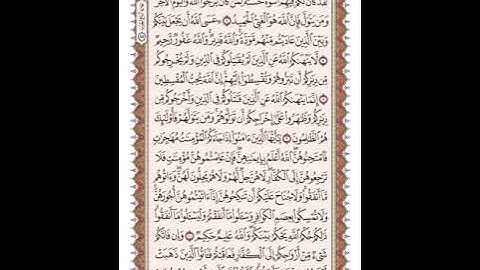 لَقَدْ كَانَ لَكُمْ فِيهِمْ أُسْوَةٌ حَسَنَةٌ لِّمَن كَانَ يَرْجُوا۟ ٱللَّهَ وَٱلْيَوْمَ ٱلْءَاخِرَ
وَمَن يَتَوَلَّ فَإِنَّ ٱللَّهَ هُوَ ٱلْغَنِىُّ ٱلْحَمِيدُ ۞ عَسَى ٱللَّهُ أَن يَجْعَلَ بَيْنَكُمْ
وَبَيْنَ ٱلَّذِينَ عَادَيْتُم مِّنْهُم مَّوَدَّةً وَٱللَّهُ قَدِيرٌ وَٱللَّهُ غَفُورٌ رَّحِيمٌ
لَّا يَنْهَىٰكُمُ ٱللَّهُ عَنِ ٱلَّذِينَ لَمْ يُقَٰتِلُوكُمْ فِى ٱلدِّينِ وَلَمْ يُخْرِجُوكُم
مِّن دِيَٰرِكُمْ أَن تَبَرُّوهُمْ وَتُقْسِطُوٓا۟ إِلَيْهِمْ إِنَّ ٱللَّهَ يُحِبُّ ٱلْمُقْسِطِينَ
إِنَّمَا يَنْهَىٰكُمُ ٱللَّهُ عَنِ ٱلَّذِينَ قَٰتَلُوكُمْ فِى ٱلدِّينِ وَأَخْرَجُوكُم مِّن
دِيَٰرِكُمْ وَظَٰهَرُوا۟ عَلَىٰٓ إِخْرَاجِكُمْ أَن تَوَلَّوْهُمْ وَمَن يَتَوَلَّهُمْ فَأُو۟لَٰٓئِكَ
هُمُ ٱلظَّٰلِمُونَ يَٰٓأَيُّهَا ٱلَّذِينَ ءَامَنُوٓا۟ إِذَا جَآءَكُمُ ٱلْمُؤْمِنَٰتُ مُهَٰجِرَٰتٍ
فَٱمْتَحِنُوهُنَّ ٱللَّهُ أَعْلَمُ بِإِيمَٰنِهِنَّ فَإِنْ عَلِمْتُمُوهُنَّ مُؤْمِنَٰتٍ فَلَا
تَرْجِعُوهُنَّ إِلَى ٱلْكُفَّارِ لَا هُنَّ حِلٌّ لَّهُمْ وَلَا هُمْ يَحِلُّونَ لَهُنَّ وَءَاتُوهُم
مَّآ أَنفَقُوا۟ وَلَا جُنَاحَ عَلَيْكُمْ أَن تَنكِحُوهُنَّ إِذَآ ءَاتَيْتُمُوهُنَّ أُجُورَهُنَّ
وَلَا تُمْسِكُوا۟ بِعِصَمِ ٱلْكَوَافِرِ وَسْـَٔلُوا۟ مَآ أَنفَقْتُمْ وَلْيَسْـَٔلُوا۟ مَآ أَنفَقُوا۟
ذَٰلِكُمْ حُكْمُ ٱللَّهِ يَحْكُمُ بَيْنَكُمْ وَٱللَّهُ عَلِيمٌ حَكِيمٌ وَإِن فَاتَكُمْ
شَىْءٌ مِّنْ أَزْوَٰجِكُمْ إِلَى ٱلْكُفَّارِ فَعَاقَبْتُمْ فَـَٔاتُوا۟ ٱلَّذِينَ ذَهَبَتْ